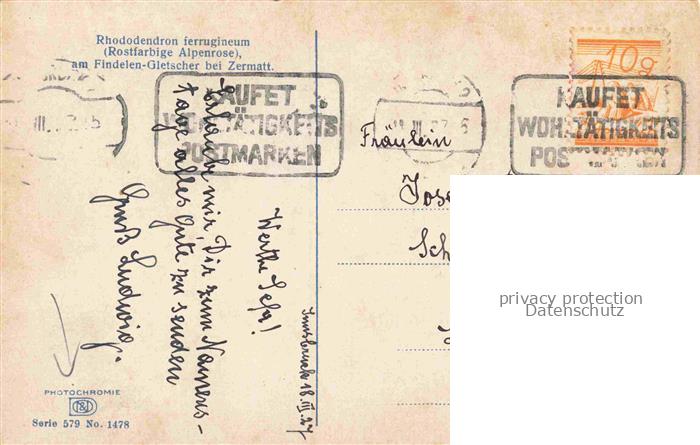 Rhododendron ferrugineum
(Rostfarbige Alpenrose),
am Findelen-Gletscher bei Zermatt.
KAUFET
WOHLTÄTIGKEITS
POSTMARKEN
KAUFET
WOHLTÄTIGKEITS
POSTMARKEN
10g
Fräulein
Jose
Sch
Innsbruck 18.III.27
Werthe Sefa!
Erlaube mir, Dir zum Namens-
tage alles Gute zu senden
Gruß Ludwig.
PHOTOCHROMIE
Serie 579 No. 1478
privacy protection
Datenschutz